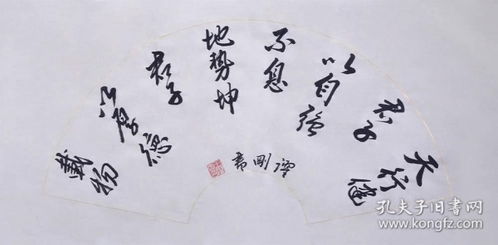 天行健
君子
以自强
不息
地势坤
君子
以厚德
载物
谭刚书
孔夫子旧书网
kongfz.com